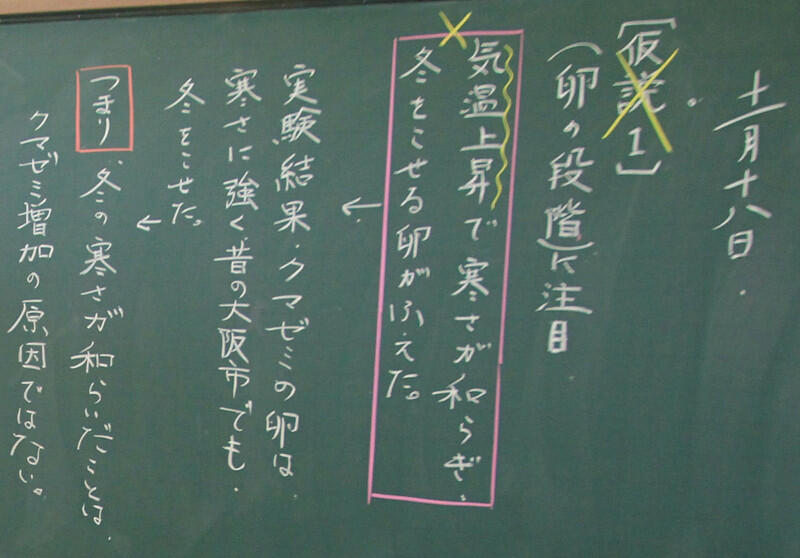 十一月十八日
〔仮説1〕
(卵の段階)に注目
気温上昇で寒さが和らぎ、
冬をこせる卵がふえた。
実験結果・クマゼミの卵は、
寒さに強く、昔の大阪市でも、
冬をこせた。
つまり、冬の寒さが和らいだことは、
クマゼミ増加の原因ではない。